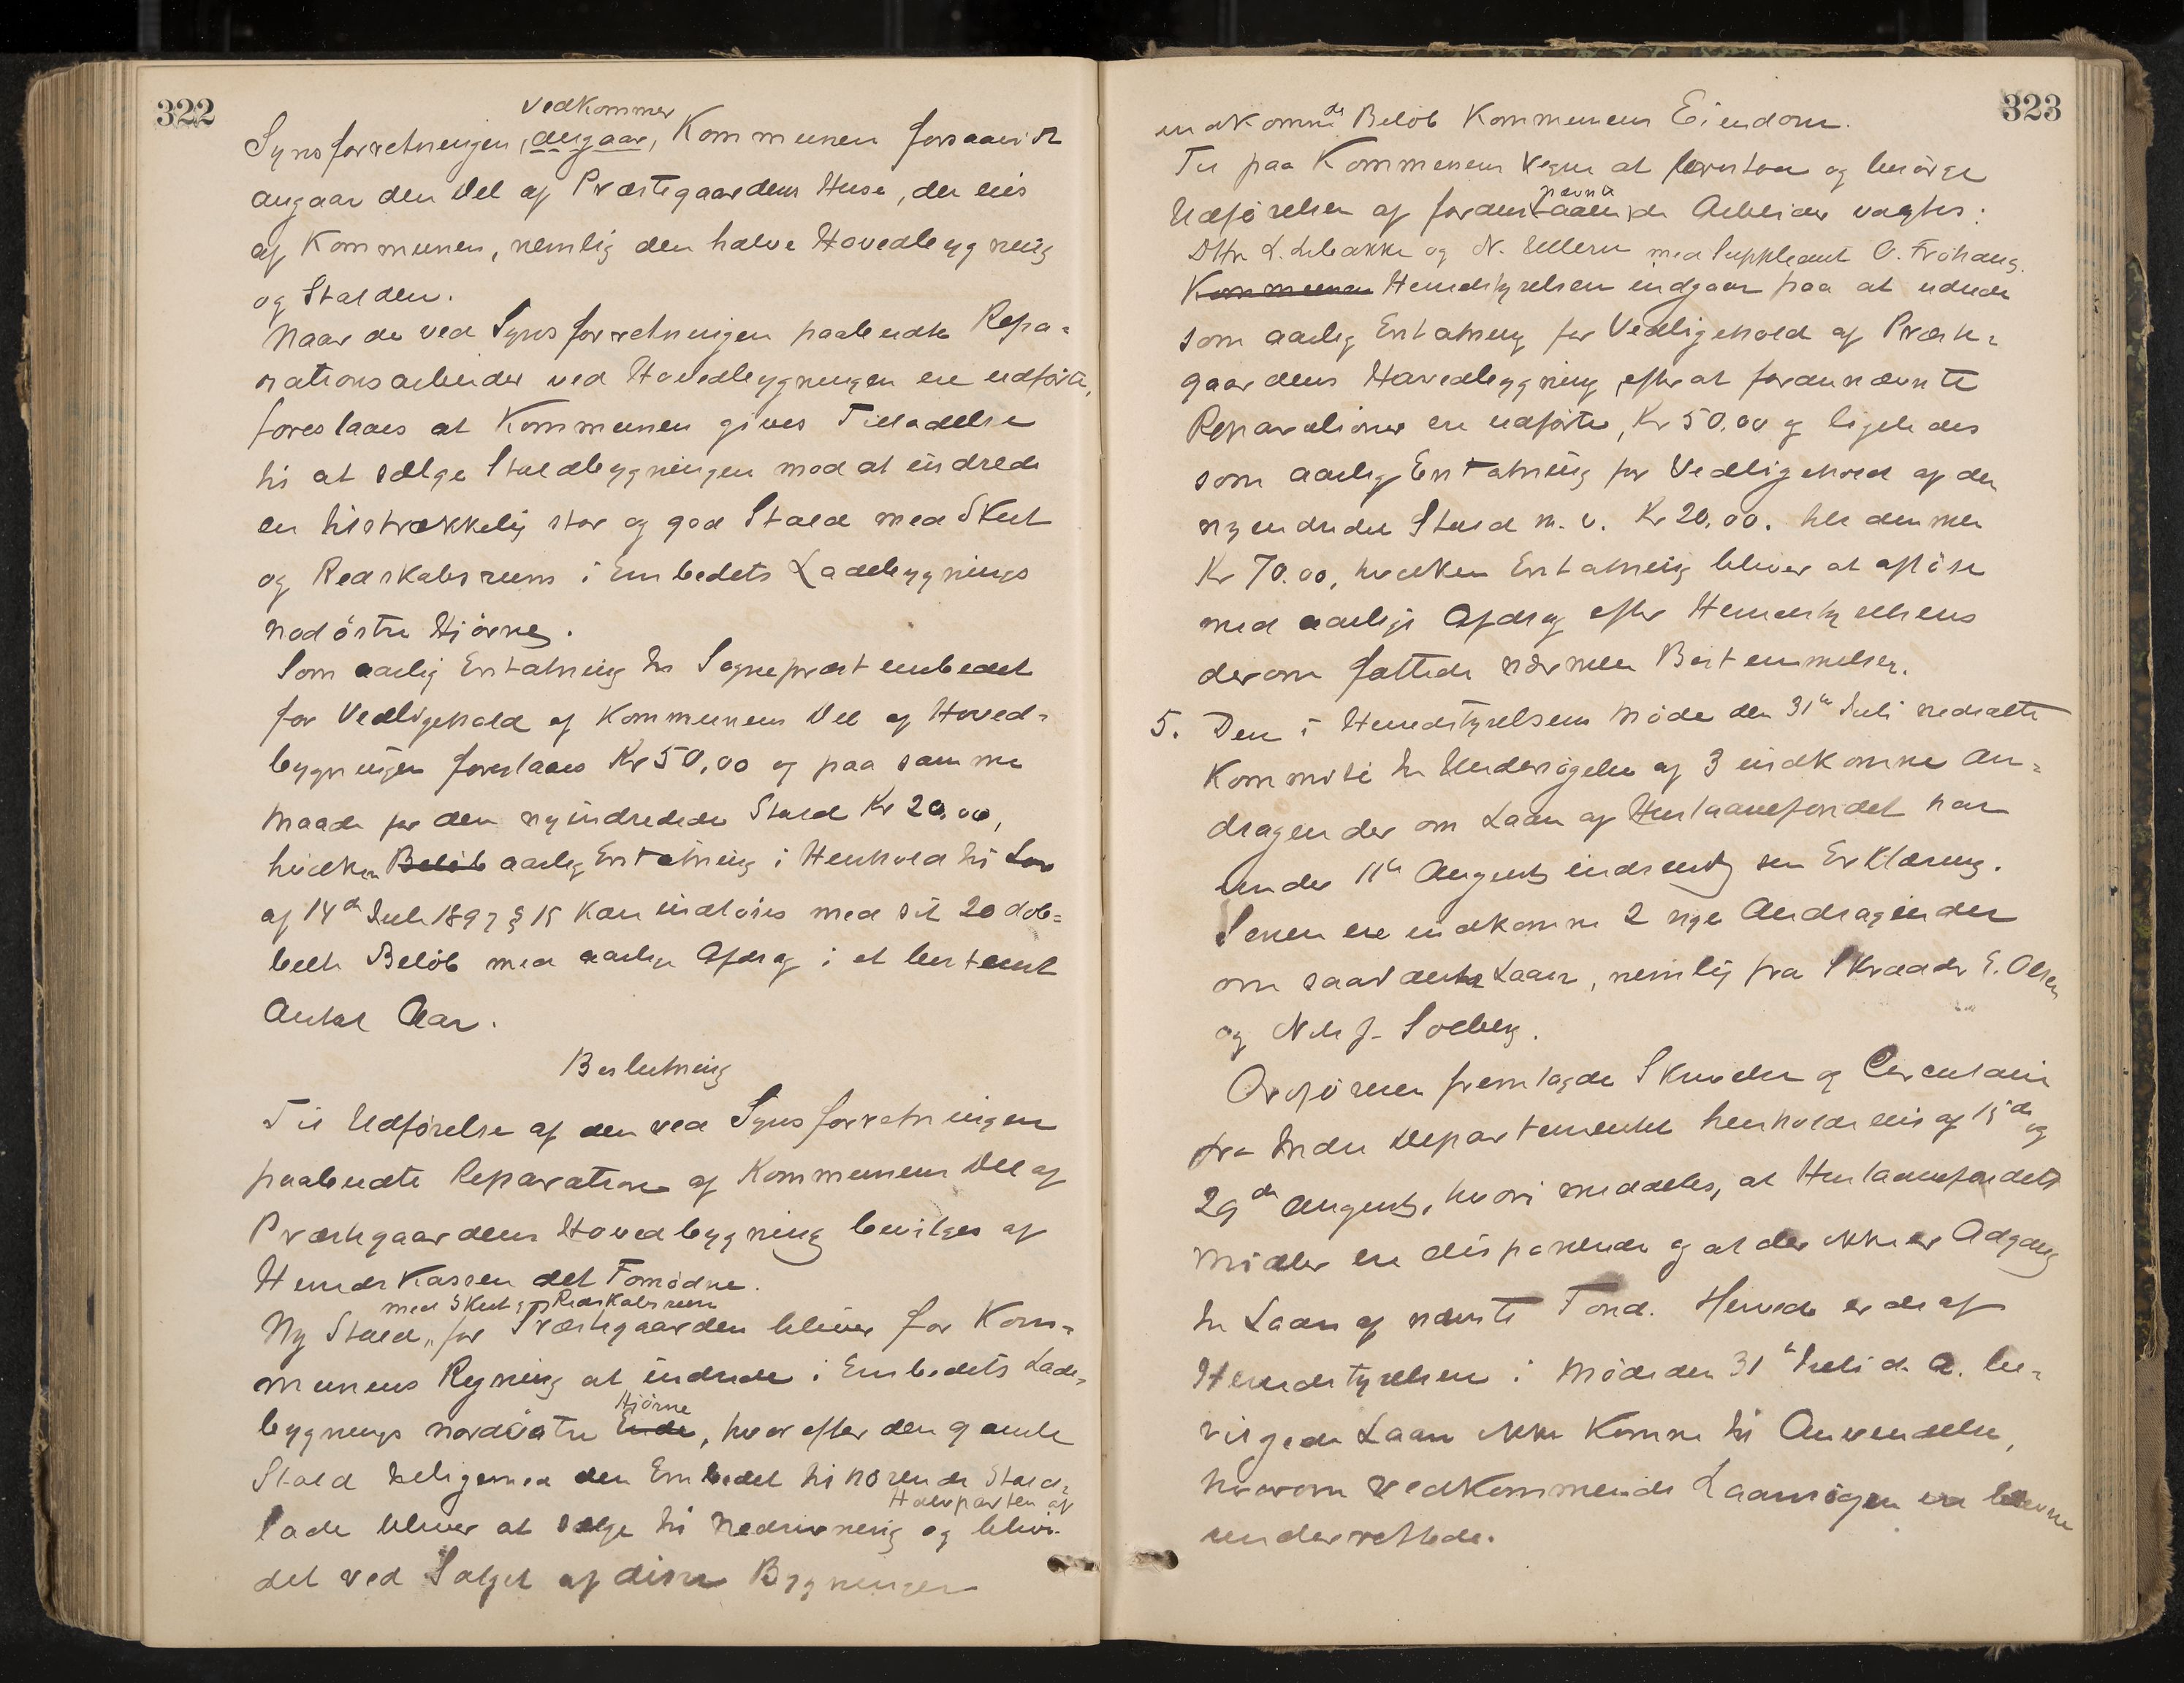 322
vedkommer
Synsforretningen, angaar, Kommunen forsaavidt
angaar den Del af Præstegaardens Huse, der eies
af Kommunen, nemlig den halve Hovedbygning
og Stalden.
Naar de ved Synsforretningen paabudte Repa-
rationsarbeider ved Hovedbygningen ere udførte,
foreslaaes at Kommunen gives Tilladelse
til at sælge Staldbygningen mod at indrede
en tilstrækkelig stor og god Stald med Skut
og Redskabsrum i Embedets Ladebygnings
nodöstre Hjørne.
Som aarlig Erstatning til Sognepræstembedet
for Vedligehold af Kommunens Del af Hoved-
bygningen foreslaaes Kr 50,00 og paa samme
Maade for den nyindredede Stald Kr 20,00,
hvilken Beløb aarlig Erstatning i Henhold til Lov
af 14de Juli 1897 § 15 kan indløses med sit 20 dob-
belte Beløb med aarlige Afdrag i et bestemt
Antal Aar.
Beslutning
Til Udførelse af den ved Synsforretningen
paabudte Reparation af Kommunens Del af
Præstegaardens Hovedbygning bevilges af
Herredskassen det Fornödne.
med Skut og Redskabsrum
Ny Stald, for Præstegaarden bliver for Kom-
munens Regning at indrede i Embedets Lade-
Hjørne
bygnings nordöstre Ende, hvorefter den gamle
Stald tilligemed den Embedet tilhörende Stald-
Halvparten af
lade bliver at sælge til Nedrivning og bliver
det ved Salget af disse Bygninger
323
indkomne Beløb Kommunens Eiendom.
Til paa Kommunens Vegne at forestaa og besørge
nævnte
Udførelsen af foranstaaende Arbeider valgtes:
Dhrr L. Lebakke og N. Ullern med Suppleant O. Fröhaug.
Kommunen Herredstyrelsen indgaar paa at udrede
som aarlig Erstatning for Vedligehold af Præste-
gaardens Hovedbygning, efterat forannævnte
Reparationer ere udførte, Kr 50,00 og ligeledes
som aarlig Erstatning for Vedligehold af den
nyindredede Stald m. v. Kr 20,00. tilsammen
Kr 70.00, hvilken Erstatning bliver at afløse
med aarlige Afdrag efter Herredstyrelsens
derom fattede nærmere Bestemmelser.
5. Den i Herredstyrelsens Møde den 31te Juli nedsatte
Kommité til Undersøgelse af 3 indkomne An-
dragender om Laan af Huslaanefondet har
under 11te August indsendt sin Erklæring.
Senere ere indkomne 2 nye Andragender
om saadanne Laan, nemlig fra Skrædder E. Olsen
og Nils J. Solberg.
Ordføreren fremlagde Skrivelse og Circulaire
fra Indre Departementet henholdsvis af 15de og
29de August, hvori meddeles, at Huslaanefondets
Midler ere disponerede og at der ikke er Adgang
til Laan af nævnte Fond. Herved er de af
Herredstyrelsen i Møde den 31te Juli d. A. be-
vilgede Laan ikke komne til Anvendelse,
hvorom vedkommende Laansögere ere blevne
underrettede.